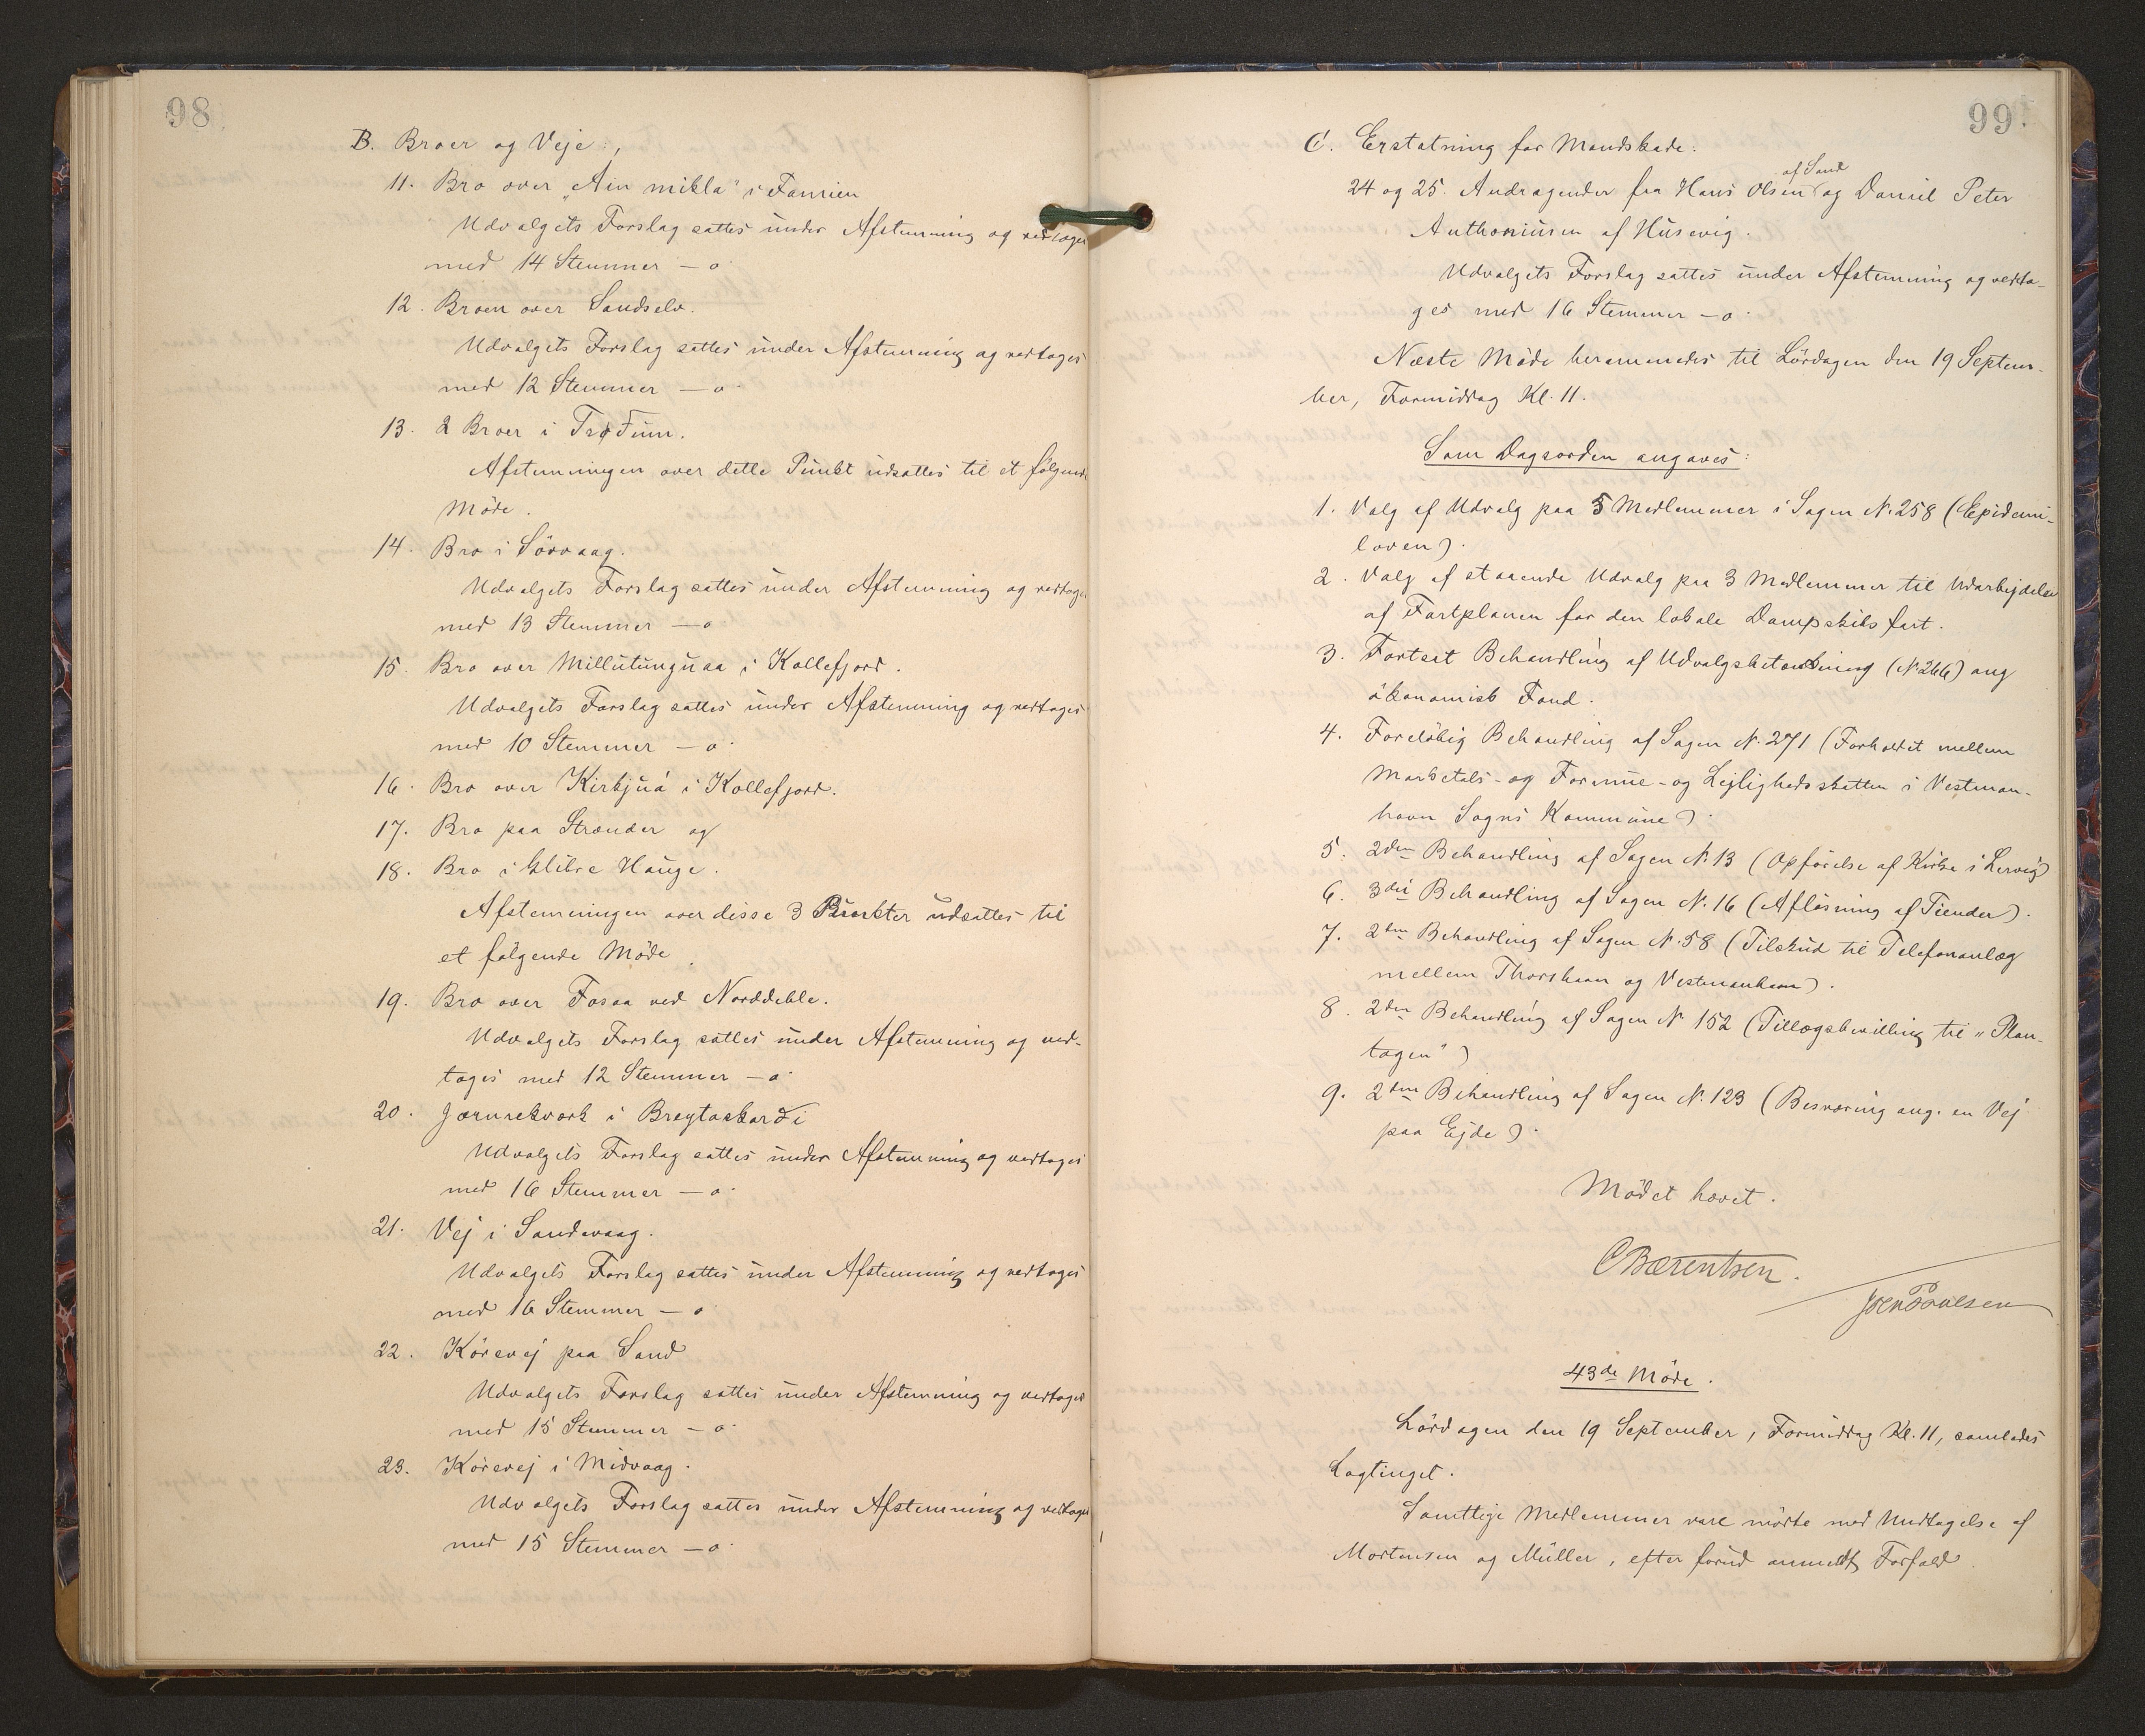 98
B. Broer og Veje:,
11. Bro over „Áin mikla" i Famien
Udvalgets Forslag sattes under Afstemning og vedtoges
med 14 Stemmer – o.
12. Broen over Sandselv.
Udvalgets Forslag sattes under Afstemning og vedtoges
med 12 Stemmer – o.
13. 2 Broer i Trøðum.
Afstemningen over dette Punkt udsattes til et følgende
Møde.
14. Bro i Sörvaag.
Udvalgets Forslag sattes under Afstemning og vedtoges
med 13 Stemmer – o
15. Bro over Millutunguaa i Kollefjord.
Udvalgets Forslag sattes under Afstemning og vedtoges
med 10 Stemmer – o.
16. Bro over Kirkjuá i Kollefjord.
17. Bro paa Strænder og
18. Bro i Glibre Hauge.
Afstemningen over disse 3 Punkter udsattes til
et følgende Møde.
19. Bro over Fosaa ved Norddeble.
Udvalgets Forslag sattes under Afstemning og ved-
toges med 12 Stemmer – o.
20. Jærnrekværk i Breytaskarði
Udvalgets Forslag sattes under Afstemning og vedtoges
med 16 Stemmer – o.
21. Vej i Sandevaag.
Udvalgets Forslag sattes under Afstemning og vedtoges
med 16 Stemmer – o.
22. Körevej paa Sand
Udvalgets Forslag sattes under Afstemning og vedtoges
med 15 Stemmer – o.
23. Körevej i Midvaag.
Udvalgets Forslag sattes under Afstemning og vedtoges
med 15 Stemmer – o.
99.
C. Erstatning for Mandskade.
af Sand
24 og 25. Andragender fra Hans Olsen og Daniel Peter
Anthoniusen af Husevig.
Udvalgets Forslag sattes under Afstemning og vedto-
ges med 16 Stemmer – o.
Næste Møde berammedes til Lördagen den 19 Septem-
ber, Formiddag Kl. 11.
Som Dagsorden angaves:
1. Valg af Udvalg paa 5 Medlemmer i Sagen N. 258 (Epidemi-
loven).
2. Valg af staaende Udvalg paa 3 Medlemmer til Udarbejdelse
af Fartplanen for den lokale Dampskibsfart.
3. Fortsat Behandling af Udvalgsbetænkning (N. 266) ang
økonomisk Fond.
4. Foreløbig Behandling af Sagen N. 271 (Forholdet mellem
Marketals- og Formue- og Lejlighedsskatten i Vestman-
havn Sogns Kommune).
5. 2den Behandling af Sagen N. 13 (Opførelse af Kirke i Lervig)
6. 3die Behandling af Sagen N. 16 (Afløsning af Tiender).
7. 2den Behandling af Sagen N. 58 (Tilskud til Telefonanlæg
mellem Thorshavn og Vestmanhavn).
8. 2den Behandling af Sagen N. 152 (Tillægsbevilling til „Plan-
tagen")
9. 2den Behandling af Sagen N. 123 (Besværing ang. en Vej
paa Ejde).
Mødet hævet.
C Bærentsen.
Joen Poulsen
43de Møde.
Lördagen den 19 September, Formiddag Kl. 11, samledes
Lagtinget.
Samtlige Medlemmer vare mødte med Undtagelse af
Mortensen og Müller, efter forud anmeldt Forfald.